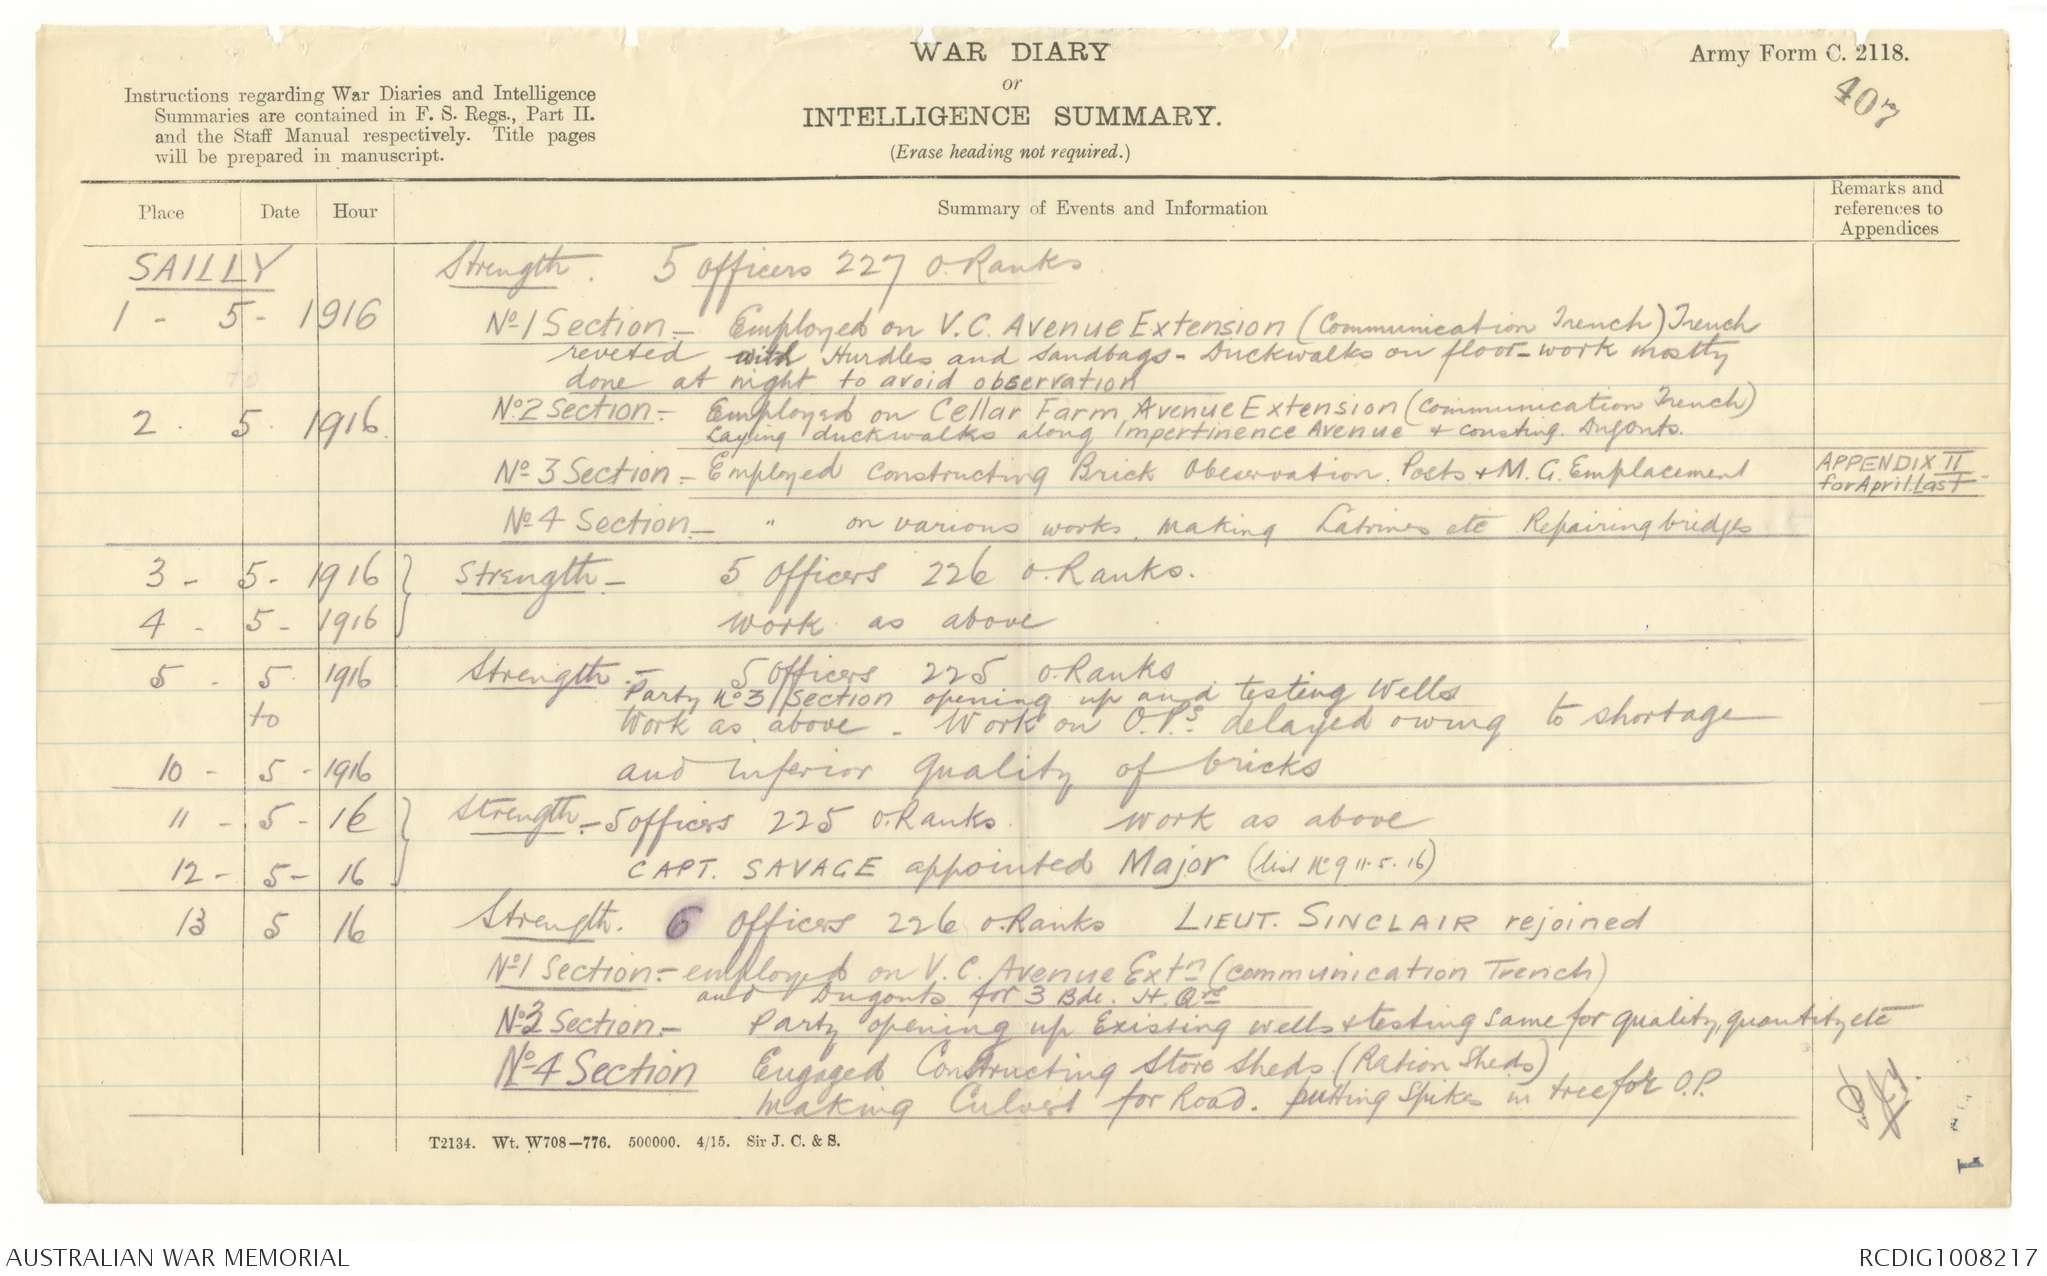 WAR DIARY
or
INTELLIGENCE SUMMARY.
(Erase heading not required.)
Army Form C. 2118.
407
Instructions regarding War Diaries and Intelligence
Summaries are contained in F. S. Regs., Part II.
and the Staff Manual respectively. Title pages
will be prepared in manuscript.
Place Date Hour Summary of Events and Information Remarks and references to Appendices
SAILLY Strength. 5 officers 227 O.Ranks
1 - 5 - 1916 No 1 Section - Employed on V.C. Avenue Extension (Communication Trench) Trench
reveted with Hurdles and sandbags - Duckwalks on floor - work mostly
done at night to avoid observation
2 . 5 . 1916. No 2 Section - Employed on Cellar Farm Avenue Extension (Communication Trench)
Laying duckwalks along Impertinence Avenue + consting. Dugouts.
No 3 Section - Employed constructing Brick Observation Posts + M.G. Emplacement APPENDIX II
for April Last
No 4 Section - " on various works, making Latrines etc Repairing bridges
3 - 5 - 1916 Strength - 5 officers 226 O.Ranks.
4 - 5 - 1916 work as above
5 - 5 . 1916 Strength - 5 officers 225 O.Ranks
Party No 3 Section opening up and testing Wells
to Work as above - Work on O.Ps. delayed owing to shortage
10 - 5 - 1916 and inferior quality of bricks
11 - 5 - 16 Strength - 5 officers 225 O.Ranks work as above
12 - 5 - 16 CAPT. SAVAGE appointed Major (list No 9 11.5.16)
13 5 16 Strength. 6 officers 226 O.Ranks LIEUT. SINCLAIR rejoined
No 1 Section - employed on V.C. Avenue Extn (Communication Trench)
and Dugouts for 3 Bde. H. Qrs
No 3 Section - Party opening up Existing wells + testing same for quality, quantity etc
No 4 Section Engaged Constructing Store Sheds (Ration Sheds)
making Culvert for Road. putting Spikes in tree for O.P.
T2134. Wt. W708—776. 500000. 4/15. Sir J. C. & S.
1
AUSTRALIAN WAR MEMORIAL
RCDIG1008217